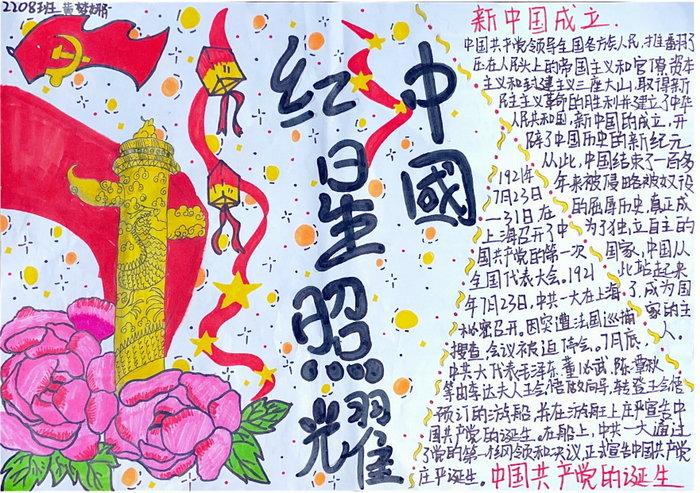 2208班
红星照耀
中國
新中国成立.
中国共产党领导全国各族人民,推翻了
压在人民头上的帝国主义和官僚资本
主义和封建主义三座大山,取得新
民主主义革命的胜利并建立了中华
人民共和国,新中国的成立,开
辟了中国历史的新纪元
从此,中国结束了一百多
年来被侵略被奴役
的屈辱历史真正成
为了独立自主的
国家,中国从
此站起来
了,成为国
家的主
人.
1921年
7月23日
一31日在
上海召开了中
国共产党的第一次
全国代表大会。1921
年7月23日,中共一大在上海
秘密召开,因突遭法国巡捕
搜查,会议被迫停会。7月底
中共大代表毛泽东、董必武、陈潭秋
等由李达夫人王会悟做向导,转登王会悟
预订的游船,并在游船上庄严宣告中
国共产党的诞生。在船上,中共一大通过
了党的第一个纲领和决议,正式宣告中国共产党
庄严诞生。
中国共产党的诞生